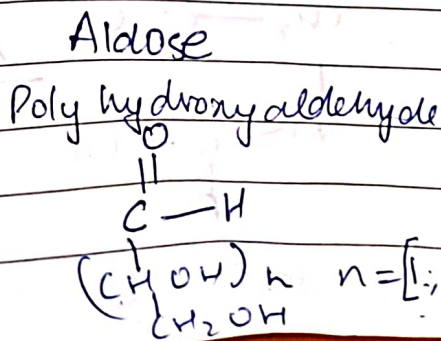 Aldose
Poly hydroxy aldehyde
O
||
C — H
(CH OH) n n = [1,
CH2 OH